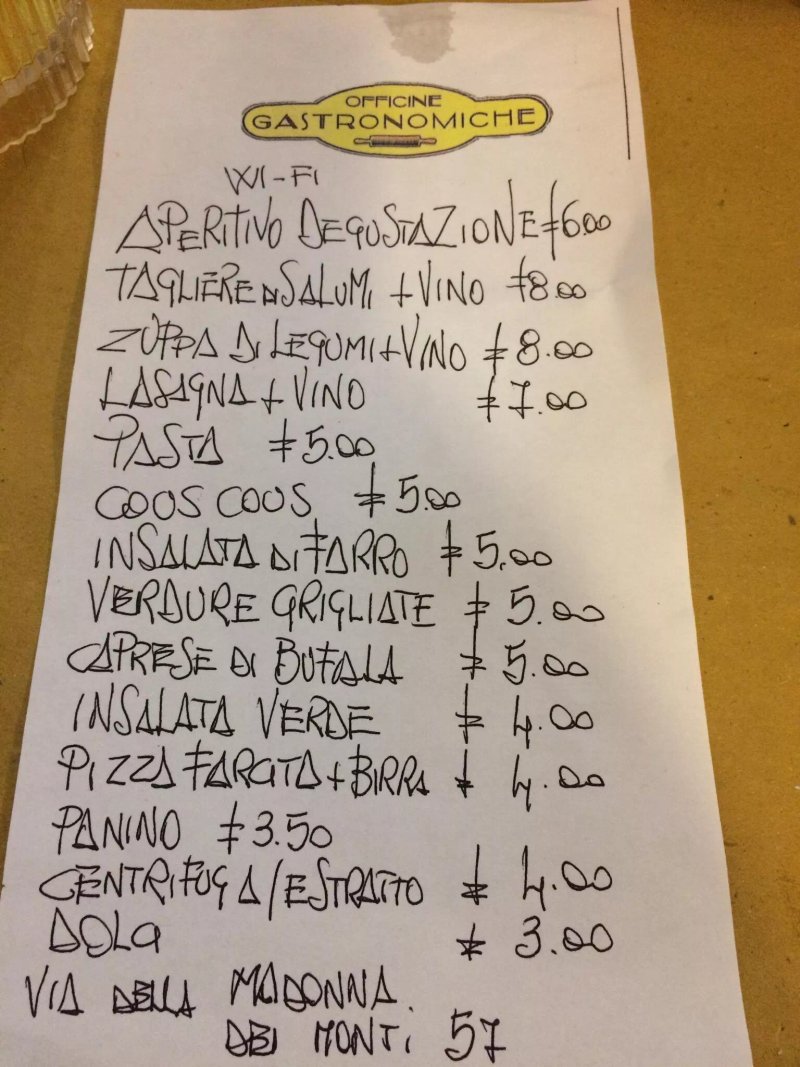 OFFICINE
GASTRONOMICHE
WI-FI
APERITIVO DEGUSTAZIONE €6.00
TAGLIERE DI SALUMI + VINO €8.00
ZUPPA DI LEGUMI + VINO €8.00
LASAGNA + VINO €7.00
PASTA €5.00
COUS COUS €5.00
INSALATA DI FARRO €5.00
VERDURE GRIGLIATE €5.00
CAPRESE DI BUFALA €5.00
INSALATA VERDE €4.00
PIZZA FARCITA + BIRRA €4.00
PANINO €3.50
CENTRIFUGA/ESTRATTO €4.00
DOLCI €3.00
VIA DELLA MADONNA
DEI MONTI 57